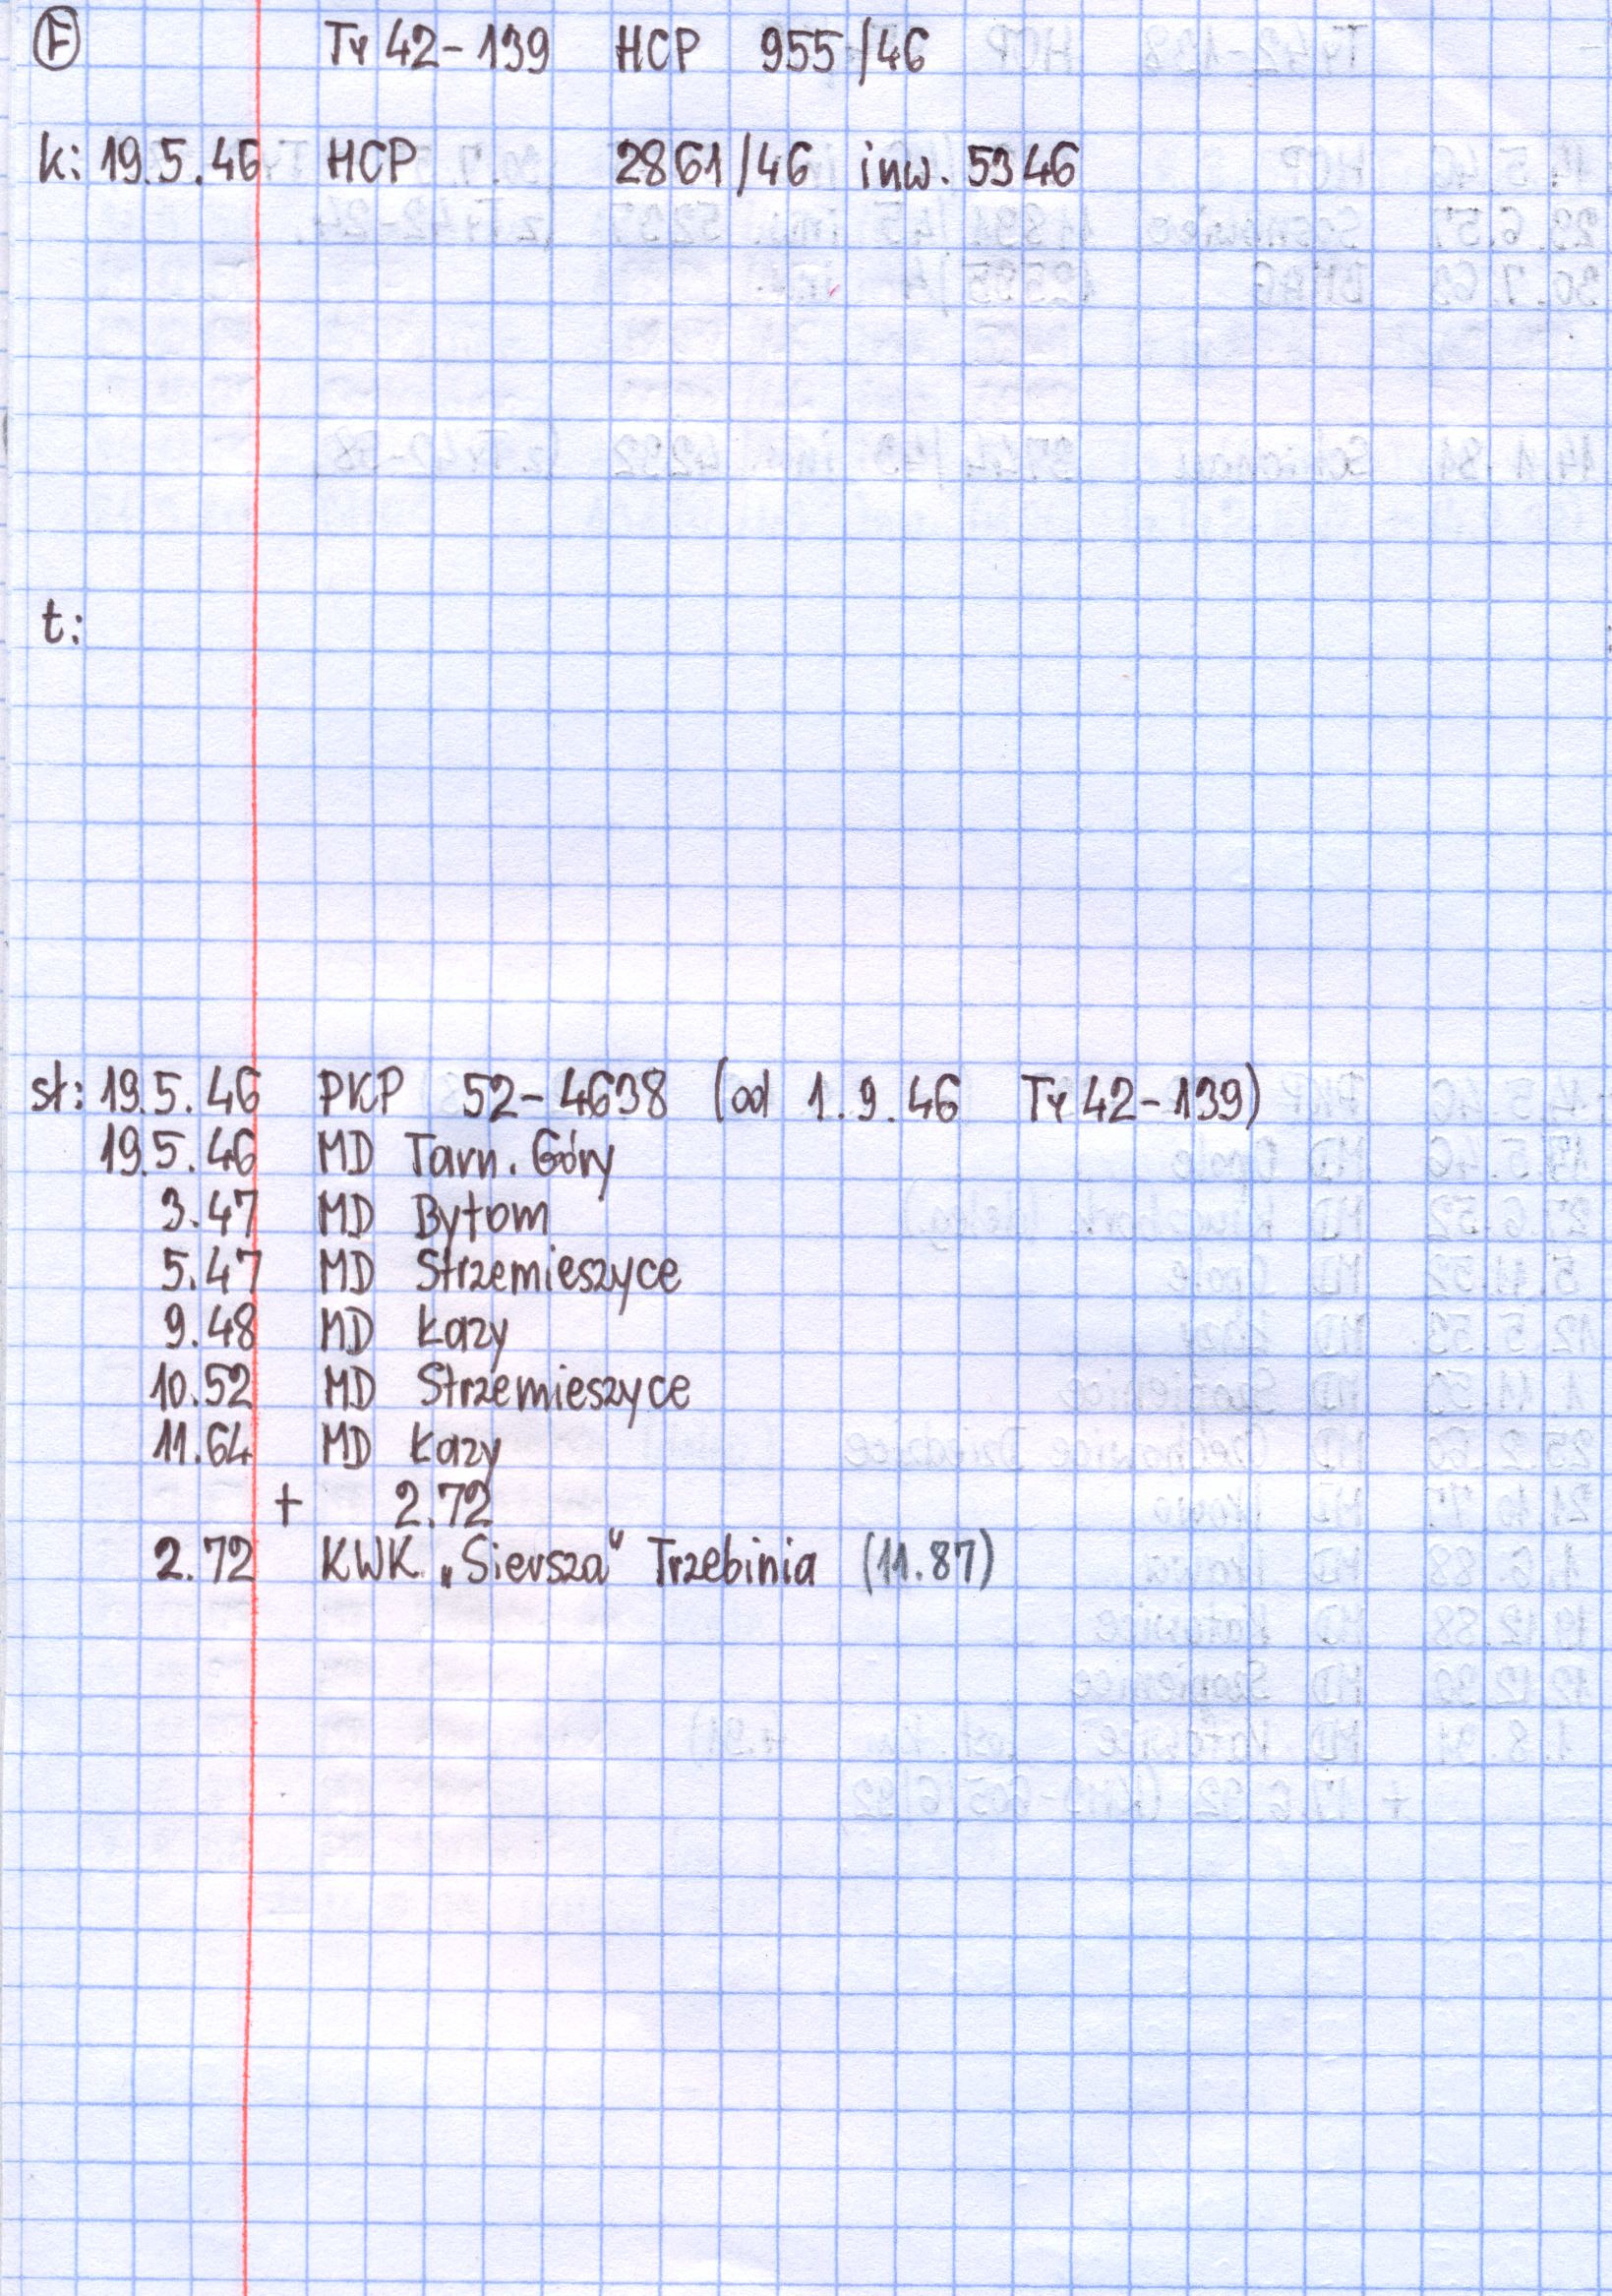 Ⓔ Ty 42-139 HCP 955/46
k: 19.5.46 HCP 2861/46 inw. 5346
t:
sł: 19.5.46 PKP 52-4638 (od 1.9.46 Ty 42-139)
19.5.46 MD Tarn. Góry
3.47 MD Bytom
5.47 MD Strzemieszyce
9.48 MD Łazy
10.52 MD Strzemieszyce
11.64 MD Łazy
+ 2.72
2.72 KWK „Siersza" Trzebinia (11.87)